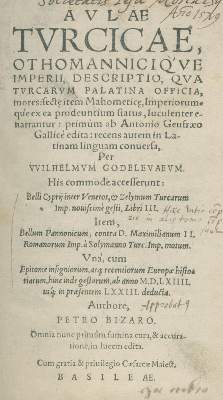 Societatis
AVLAE
TVRCICAE,
OTHOMANNICIQ'VE
IMPERII, DESCRIPTIO, QVA
TVRCARVM PALATINA OFFICIA,
mores: sectę item Mahometicę, Imperiorum-
que ex ea prodeuntium status, luculenter e-
narrantur: primùm ab Antonio Geufræo
Gallicè edita: recens autem in La-
tinam linguam conuersa,
Per
VVILHELMVM GODELEVAEVM.
His commodè accesserunt:
Belli Cyprij inter Venetos, & Zelymum Turcarum
Imp. nouissimè gesti, Libri III.
Item,
Bellum Pannonicum, contra D. Maximilianum II.
Romanorum Imp. à Solymanno Turc. Imp. motum.
Vnà, cum
Epitome insigniorum, atq; recentiorum Europæ histo
riarum, hinc inde gestarum, ab anno M.D.LXIIII.
usq; in præsentem LXXIII. deducta.
Authore,
PETRO BIZARO.
Omnia nunc primùm summa cura, & accura-
tione, in lucem edita.
Cum gratia & priuilegio Cæsareæ Maiest.
BASILEAE.